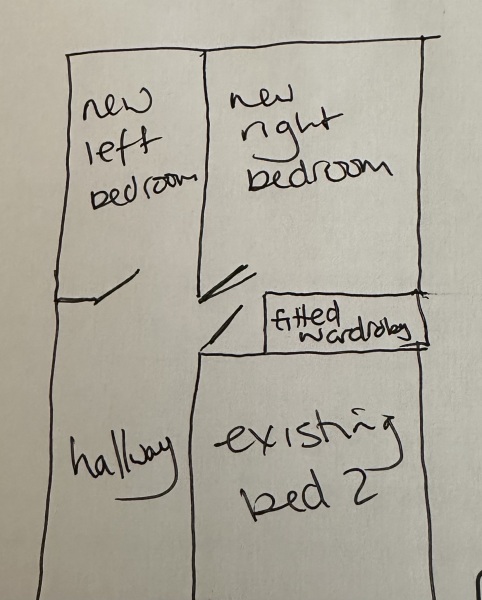 new
left
bedroom
new
right
bedroom
fitted
wardrobe
hallway
existing
bed 2